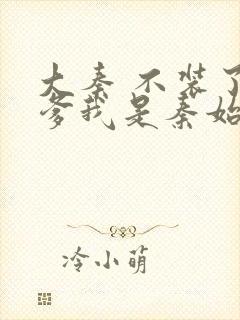 大秦 不装了
爹我是秦始
冷小萌